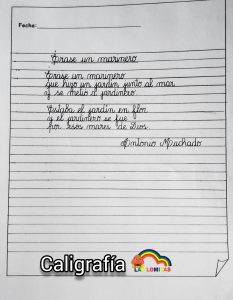 Fecha:
Érase un marinero
Érase un marinero
que hizo un jardín junto al mar
y se metió a jardinero.
Estaba el jardín en flor
y el jardinero se fue
por esos mares de Dios.
Antonio Machado
Caligrafía
LAS LOMITAS